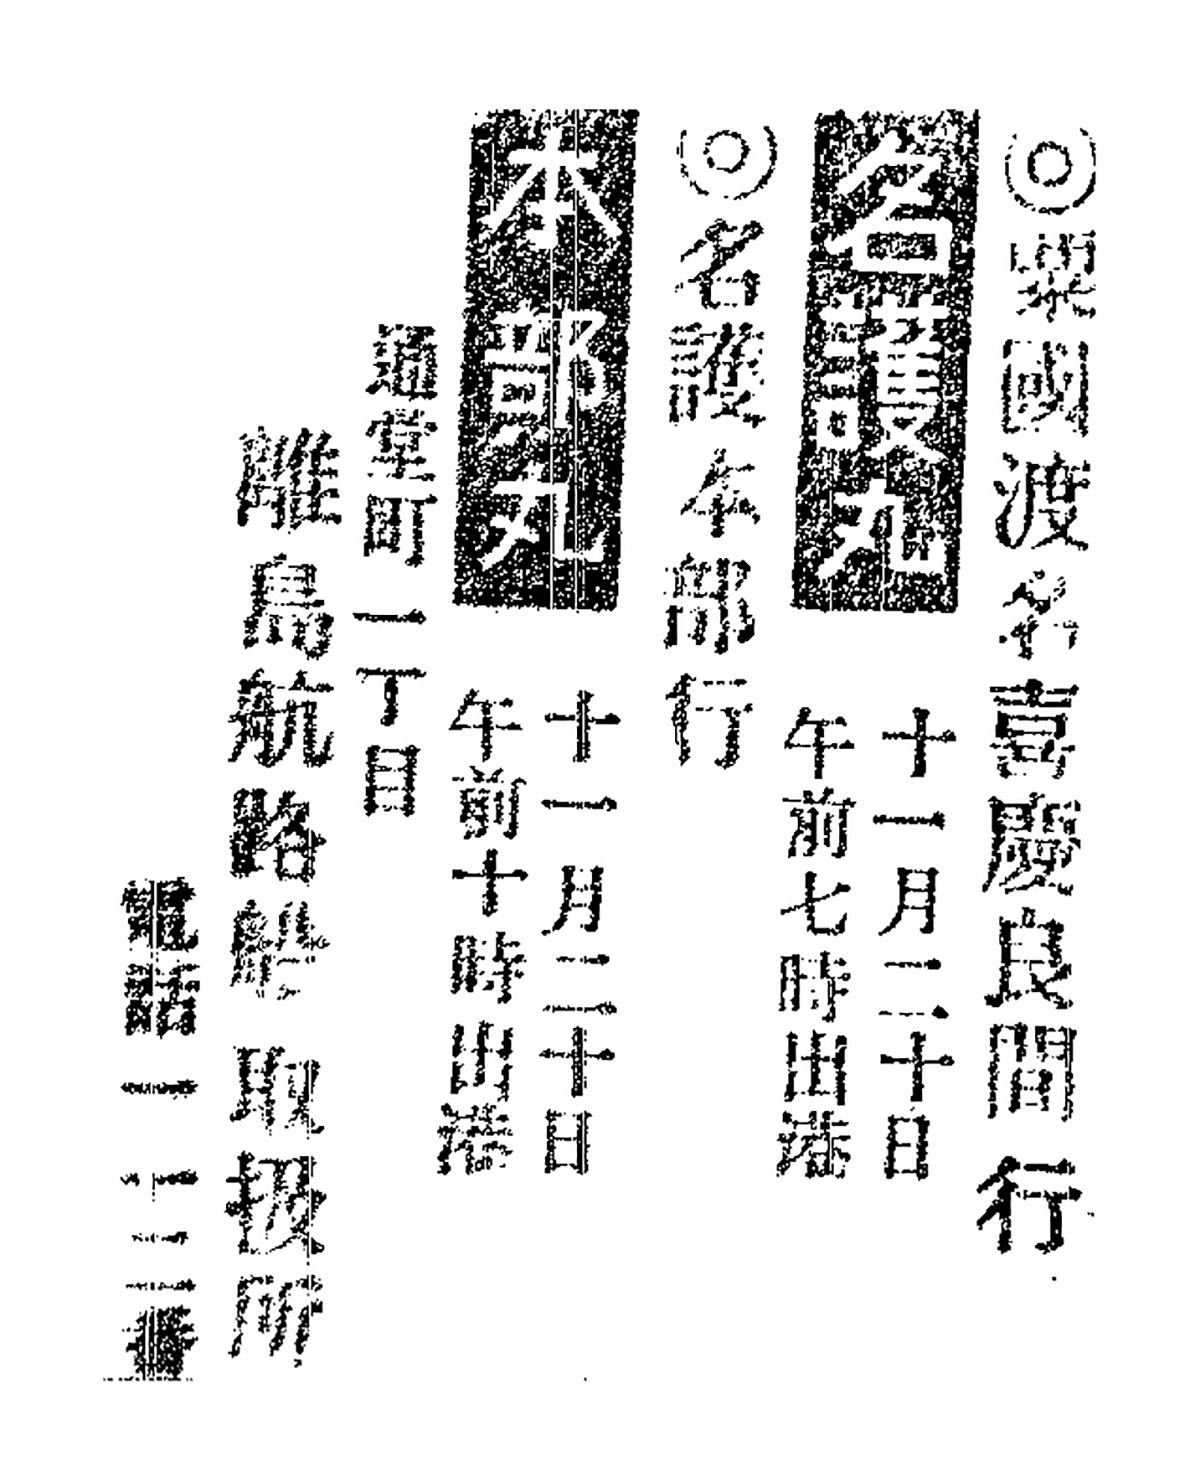 ◎粟國渡名喜慶良間行
名護丸
十一月二十日
午前七時出港
◎名護本部行
本部丸
十一月二十日
午前十時出港
通堂町一丁目
離島航路 取扱所
電話一